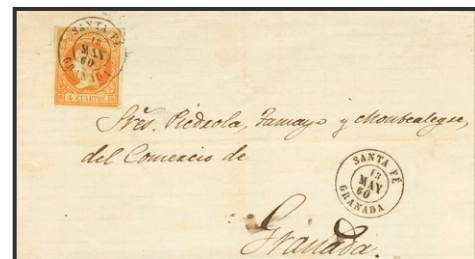 SANTA FÉ
13
MAY
60
GRANADA
4 CUARTOS
Sres. Piedrola, Tamayo y Montealegre,
del Comercio de
SANTA FÉ
13
MAY
60
GRANADA
Granada.